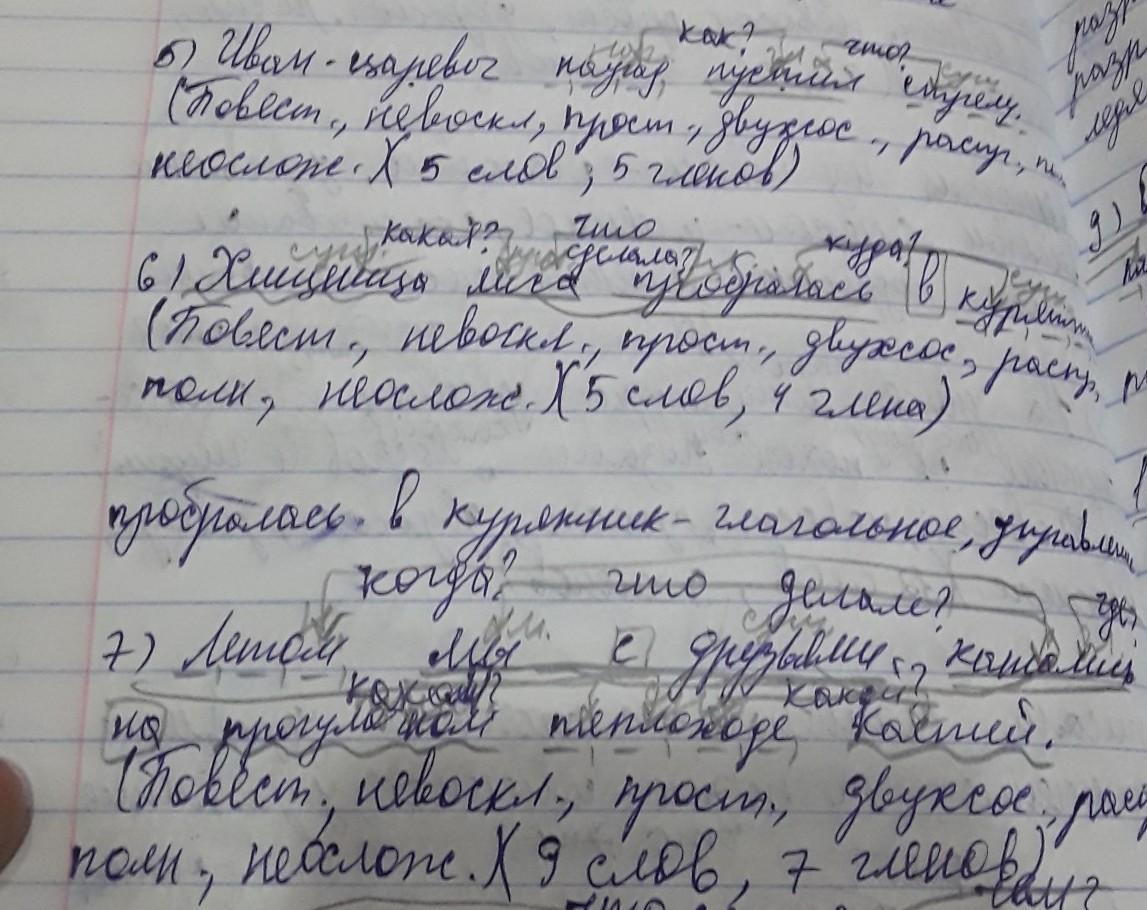 как? что?
5) Иван-царевич наугад пустил стрелу.
(Повест., невоскл, прост., двухсос., распр.,
неослож.) (5 слов, 5 членов)
какая? что
сущ. делала? куда?
6) Хищница лиса пробралась в курятник
(Повест., невоскл., прост., двухсос, распр,
полн, неослож.) (5 слов, 4 члена)
пробралась в курятник - глагольное, управлен
когда? что делали? где?
7) Летом мы с друзьями катались
каком? какой?
на прогулочном теплоходе Каспий.
(Повест., невоскл., прост., двухсос., расп
полн., неослож.) (9 слов, 7 членов)
разр
разр
9)